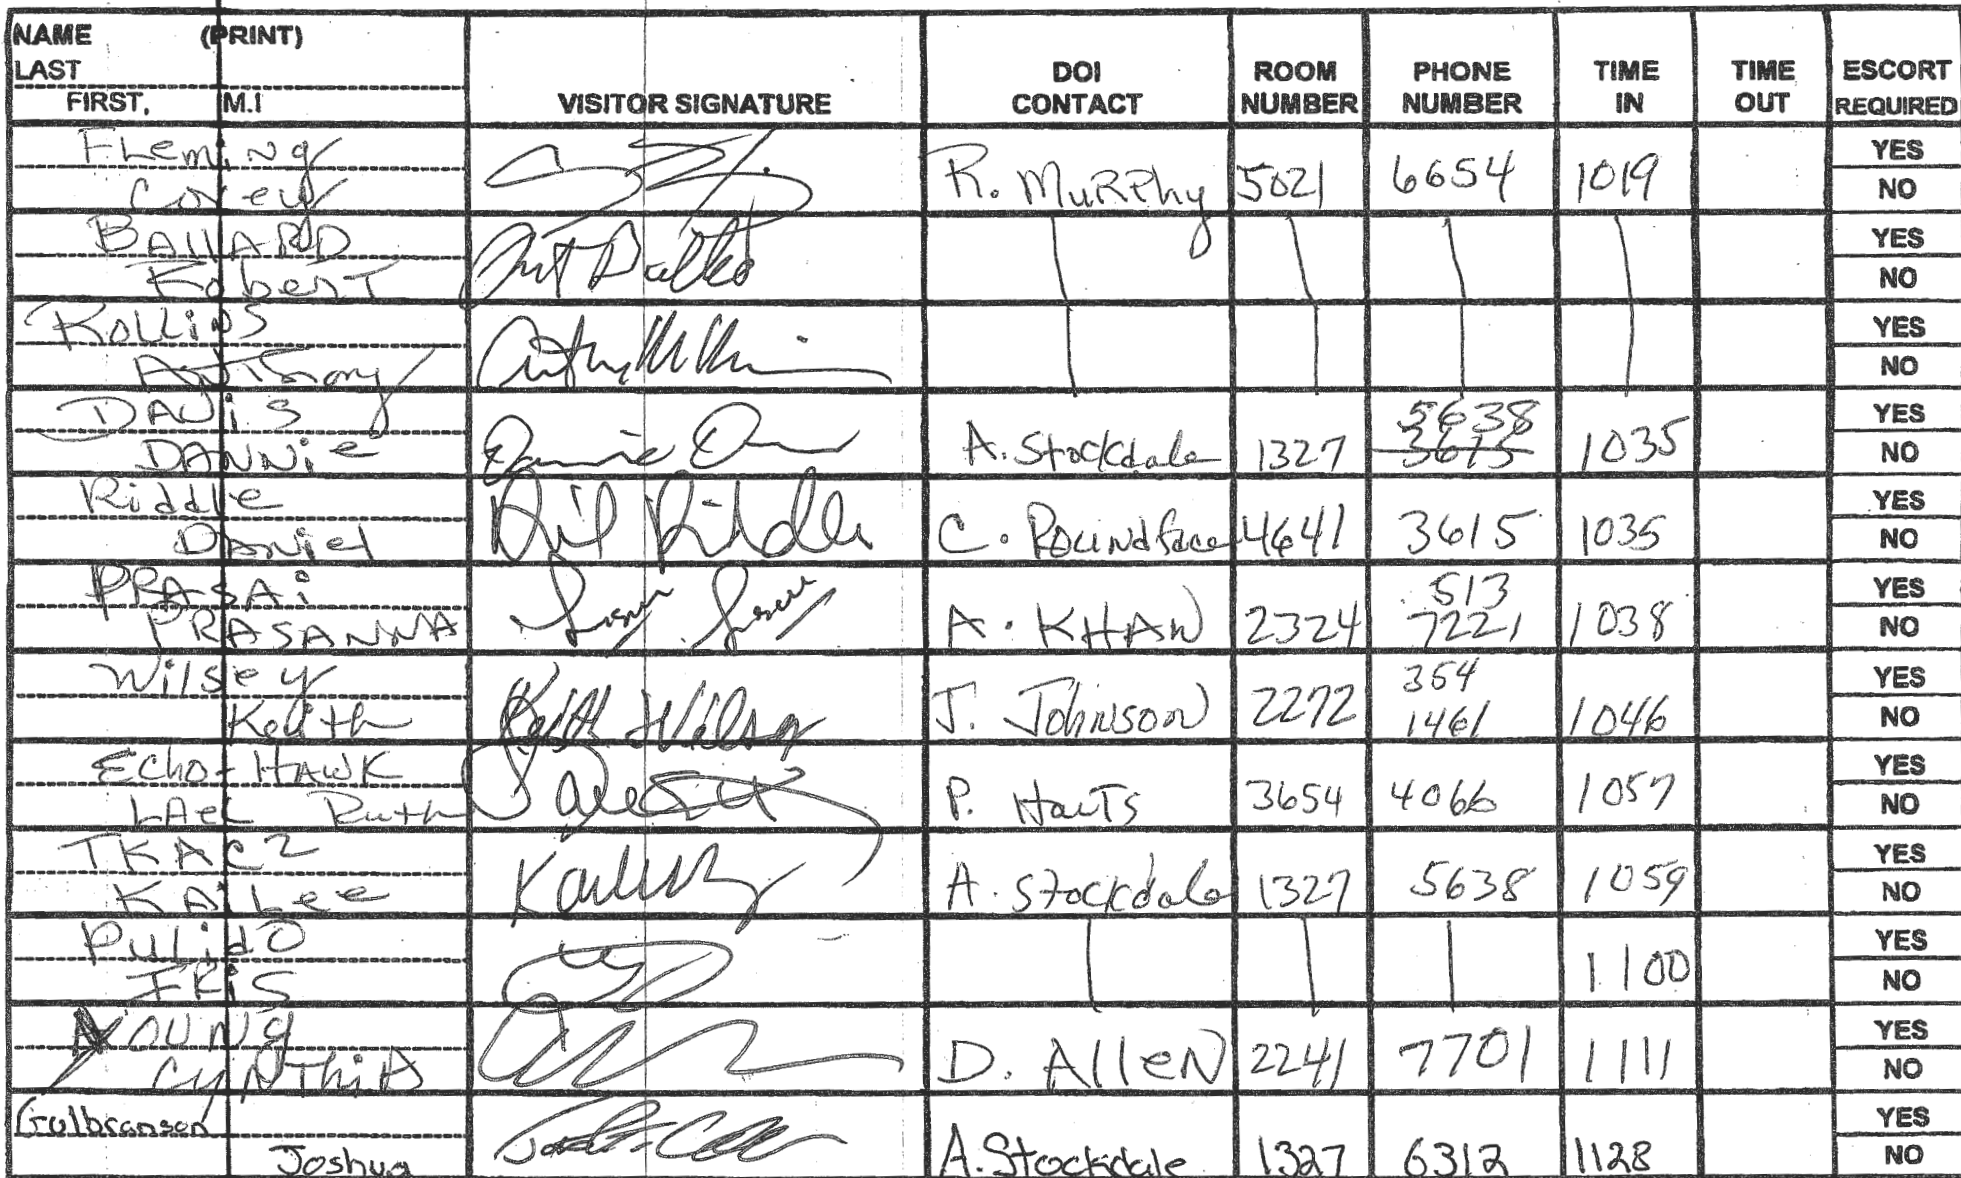 NAME (PRINT)
LAST
FIRST, M.I
VISITOR SIGNATURE
DOI CONTACT
ROOM NUMBER
PHONE NUMBER
TIME IN
TIME OUT
ESCORT REQUIRED
Fleming
Corey
R. Murphy 5021 6654 1019 YES NO
BALLARD
Robert
YES NO
Rollins
Anthony
YES NO
DAVIS
DANNIE
A. Stockdale 1327 5638 3615 1035 YES NO
Riddle
Daniel
C. Roundface 4641 3615 1035 YES NO
PRASAi
PRASANNA
A. KHAN 2324 513 7221 1038 YES NO
Wilsey
Keith
Keith Wilsey
J. Johnson 2272 354 1461 1046 YES NO
Echo-Hawk
LAel Ruth
P. 3654 4066 1057 YES NO
TKACZ
KAiLee
A. Stockdale 1327 5638 1059 YES NO
PULidO
IRiS
1100 YES NO
YOUNG
CYNThiA
D. AlleN 2241 7701 1111 YES NO
Gulbranson
Joshua
A. Stockdale 1327 6312 1128 YES NO